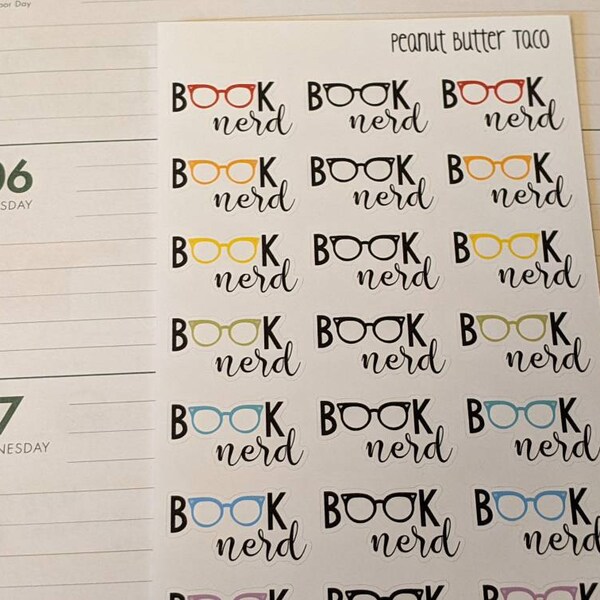 bor Day
Peanut Butter Taco
BOOK BOOK BOOK
nerd nerd nerd
06
BOOK BOOK BOOK
nerd nerd nerd
SDAY
BOOK BOOK BOOK
nerd nerd nerd
BOOK BOOK BOOK
nerd nerd nerd
7
BOOK BOOK BOOK
nerd nerd nerd
NESDAY
BOOK BOOK BOOK
nerd nerd nerd